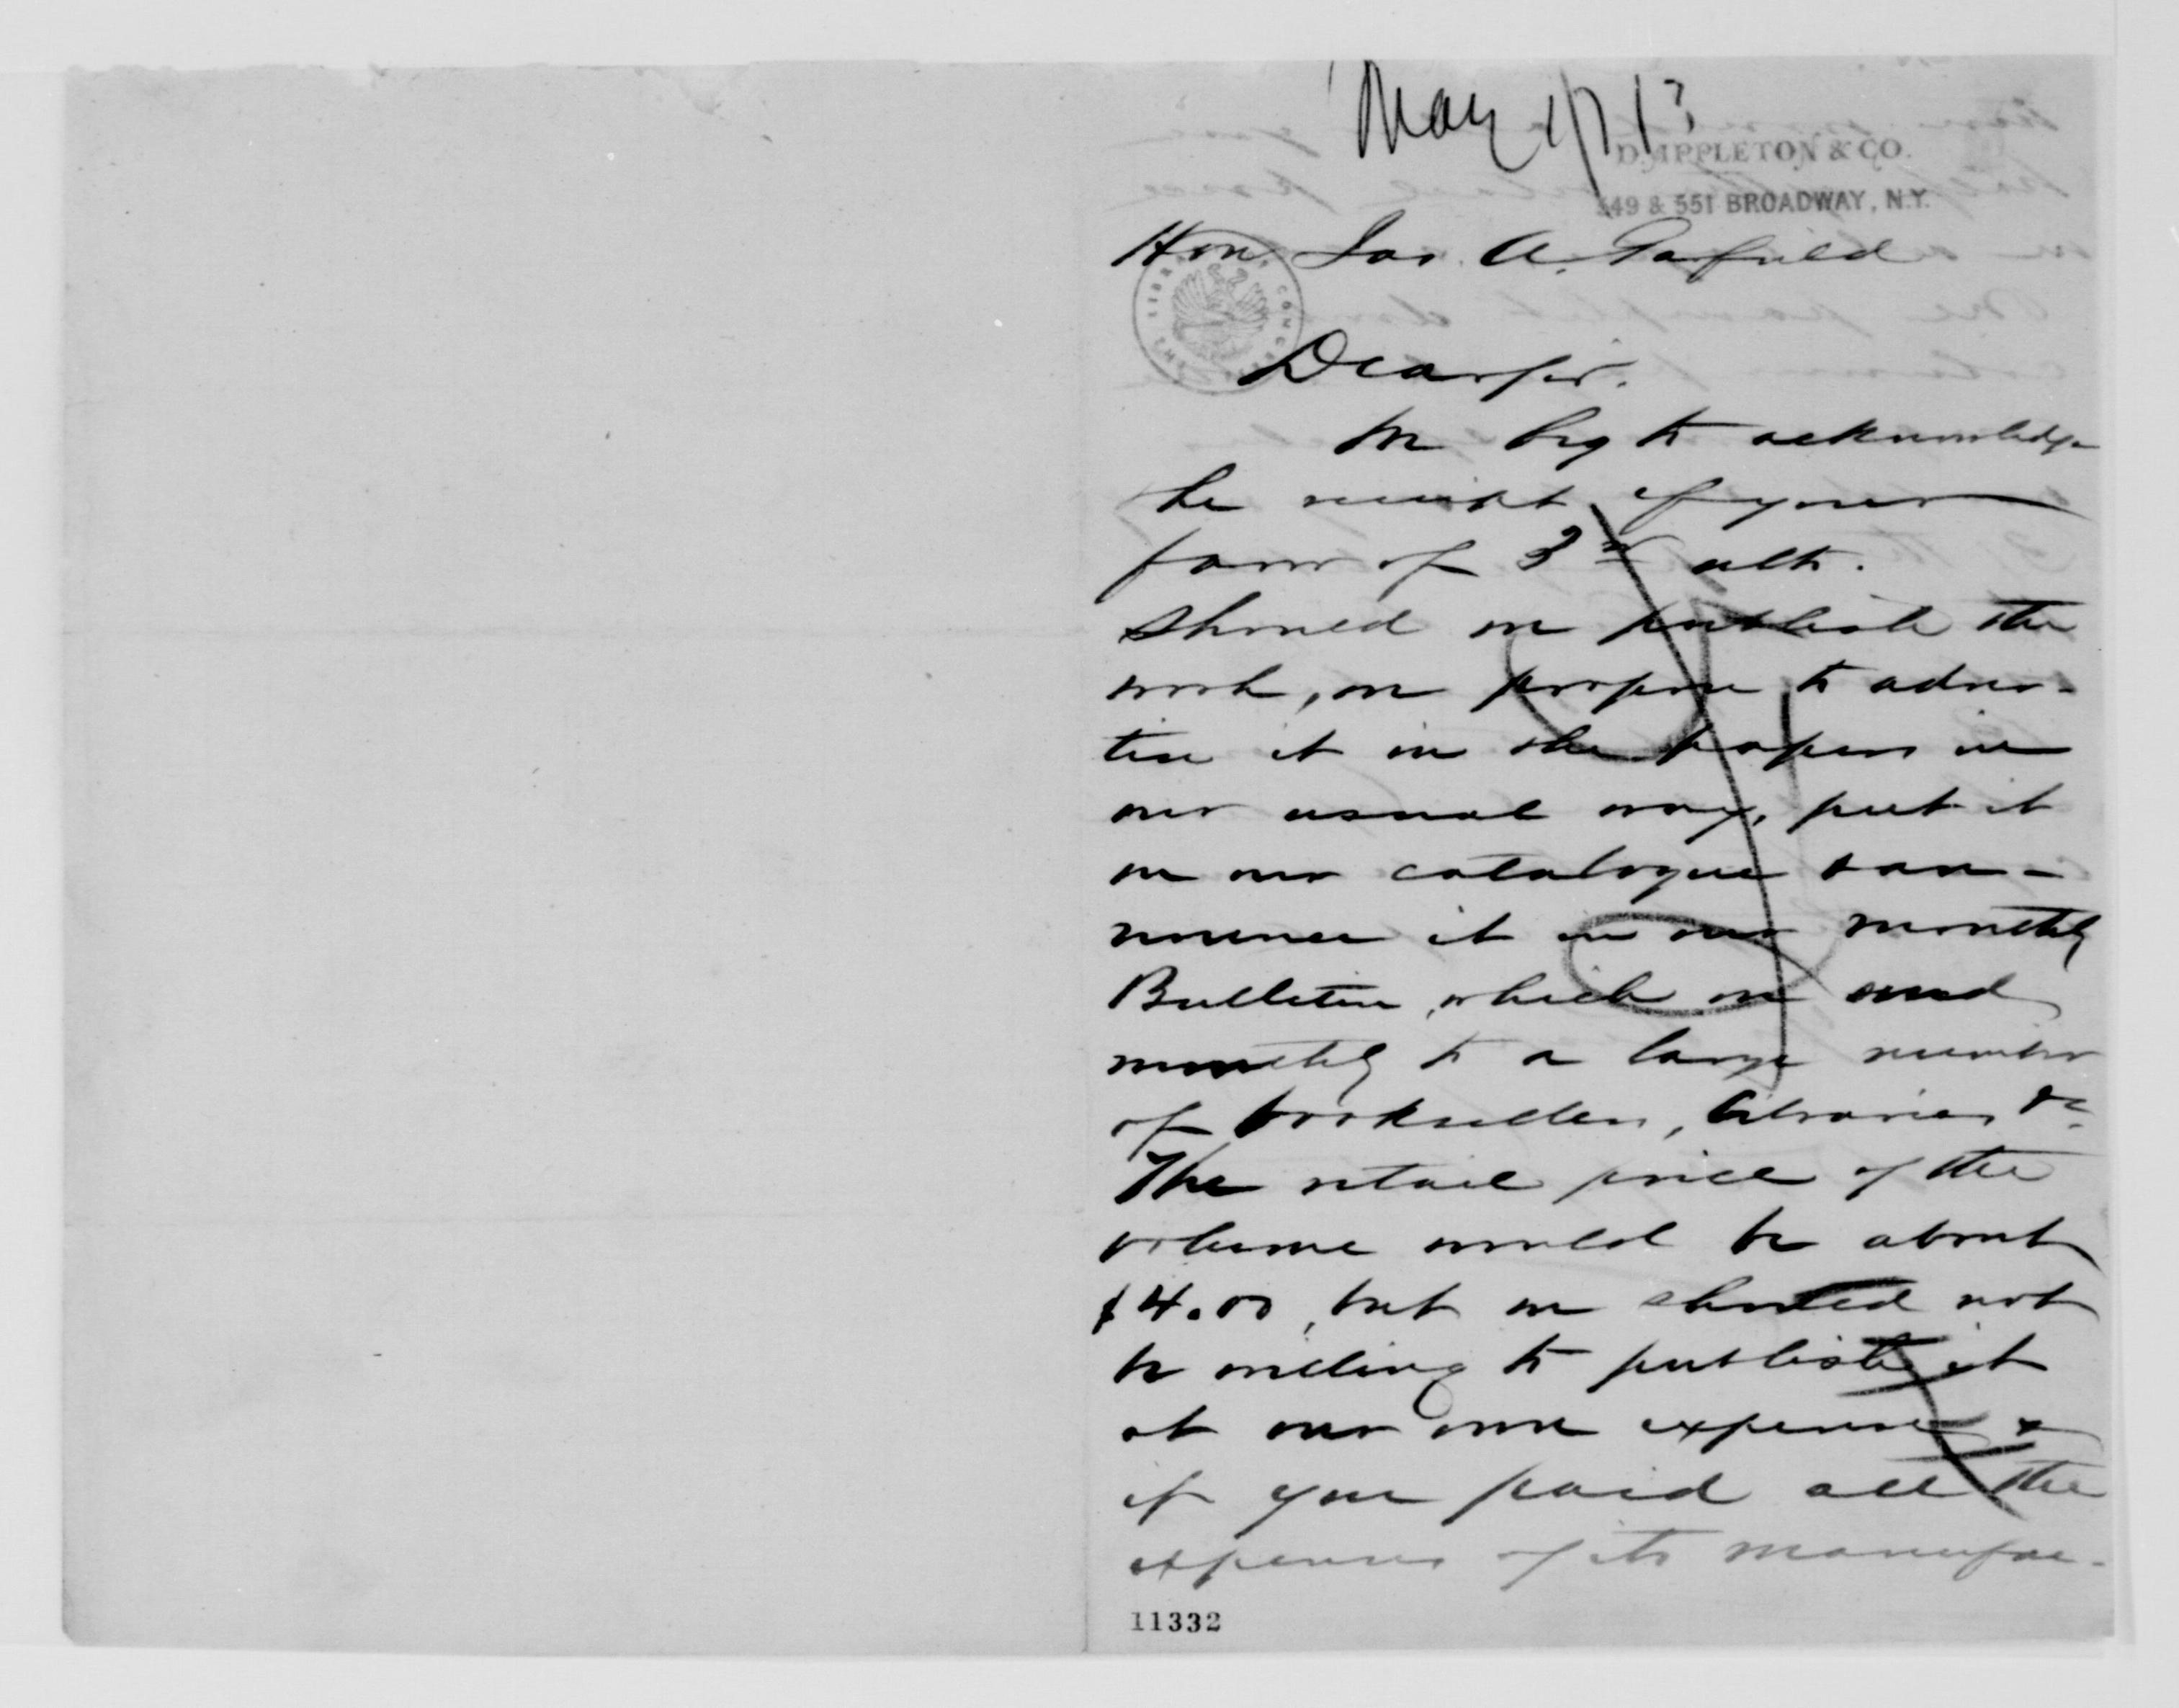 May 1/73
D. APPLETON & CO.
549 & 551 BROADWAY, N.Y.
Hon. Jas. A. Garfield
Dear Sir.
We beg to acknowledge
the receipt of your
favor of 3rd ult.
Should we publish the
work, we propose to adver-
tise it in the papers in
our usual way, put it
on our catalogue & an-
nounce it in our monthly
Bulletin, which we send
monthly to a large number
of booksellers, libraries &c.
The retail price of the
volume would be about
$4.00, but we should not
be willing to publish it
at our own expense &
if you paid all the
expenses of its manufac-
11332